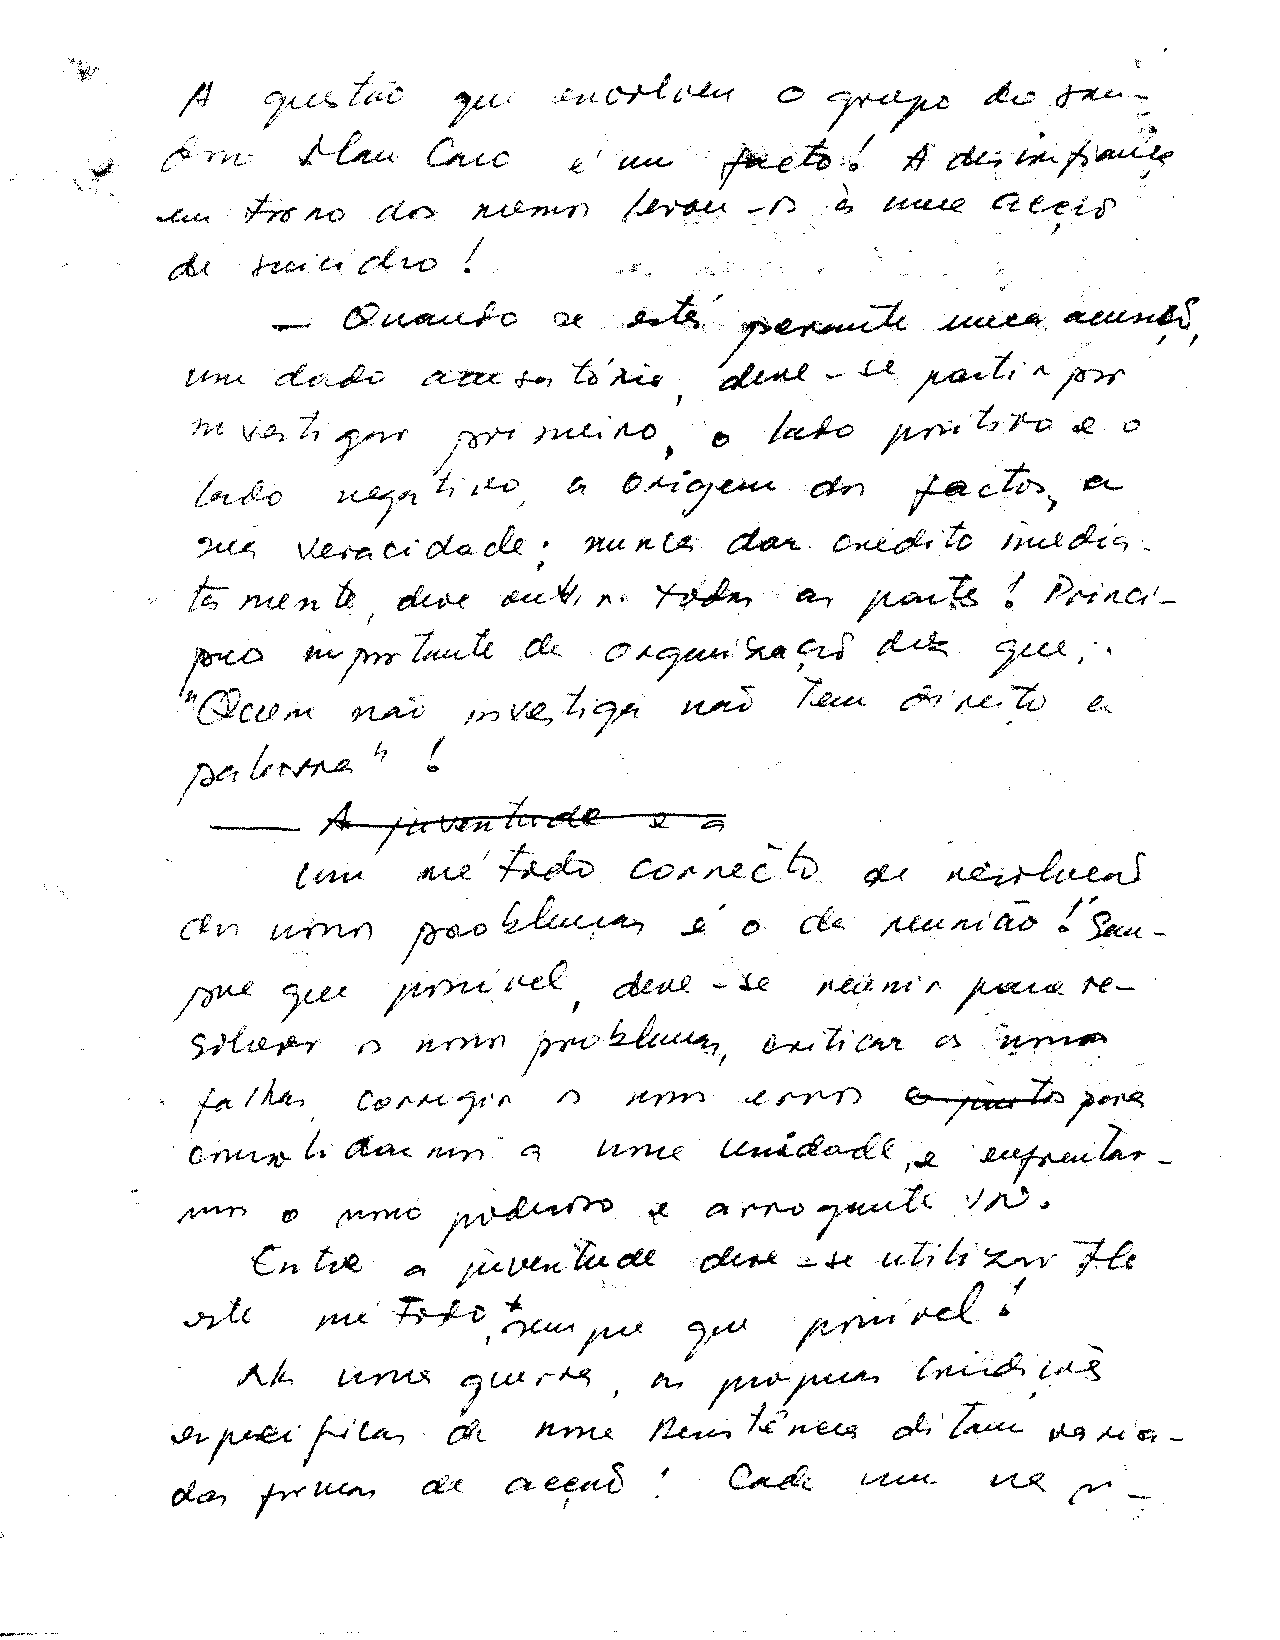 A questão que envolveu o grupo do sau-
doso Mau Caic é um facto! A desconfiança
em trono dos mesmos levou-os à uma acção
de suicidio!
— Quando se está perante uma acusação,
um dado acusatório, deve-se partir por
investigar primeiro, o lado positivo e o
lado negativo, a origem dos factos, a
sua veracidade; nunca dar crédito imedia-
tamente, deve ouvir todas as partes! Princi-
pio importante de organização diz que:
"Quem não investiga não tem direito a
palavra"!
— A juventude e a
Um método correcto de resolução
dos nossos problemas é o da reunião! Sem-
pre que possível, deve-se reunir para re-
solver os nossos problemas, criticar as nossas
falhas, corregir os nossos erros e juntos para
consolidarmos a nossa unidade, e enfrentar-
mos o nosso poderoso e arrogante IN.
Entre a juventude deve-se utilizar
este método, sempre que possível!
Na nossa guerra, as proprias condições
especificas da nossa Resistência ditam varia-
das formas de acção! Cada um na